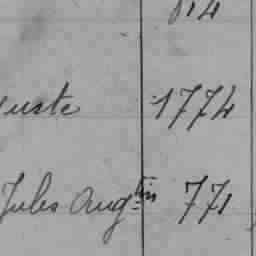 814
uste 1774
Jules Aug^tin 771